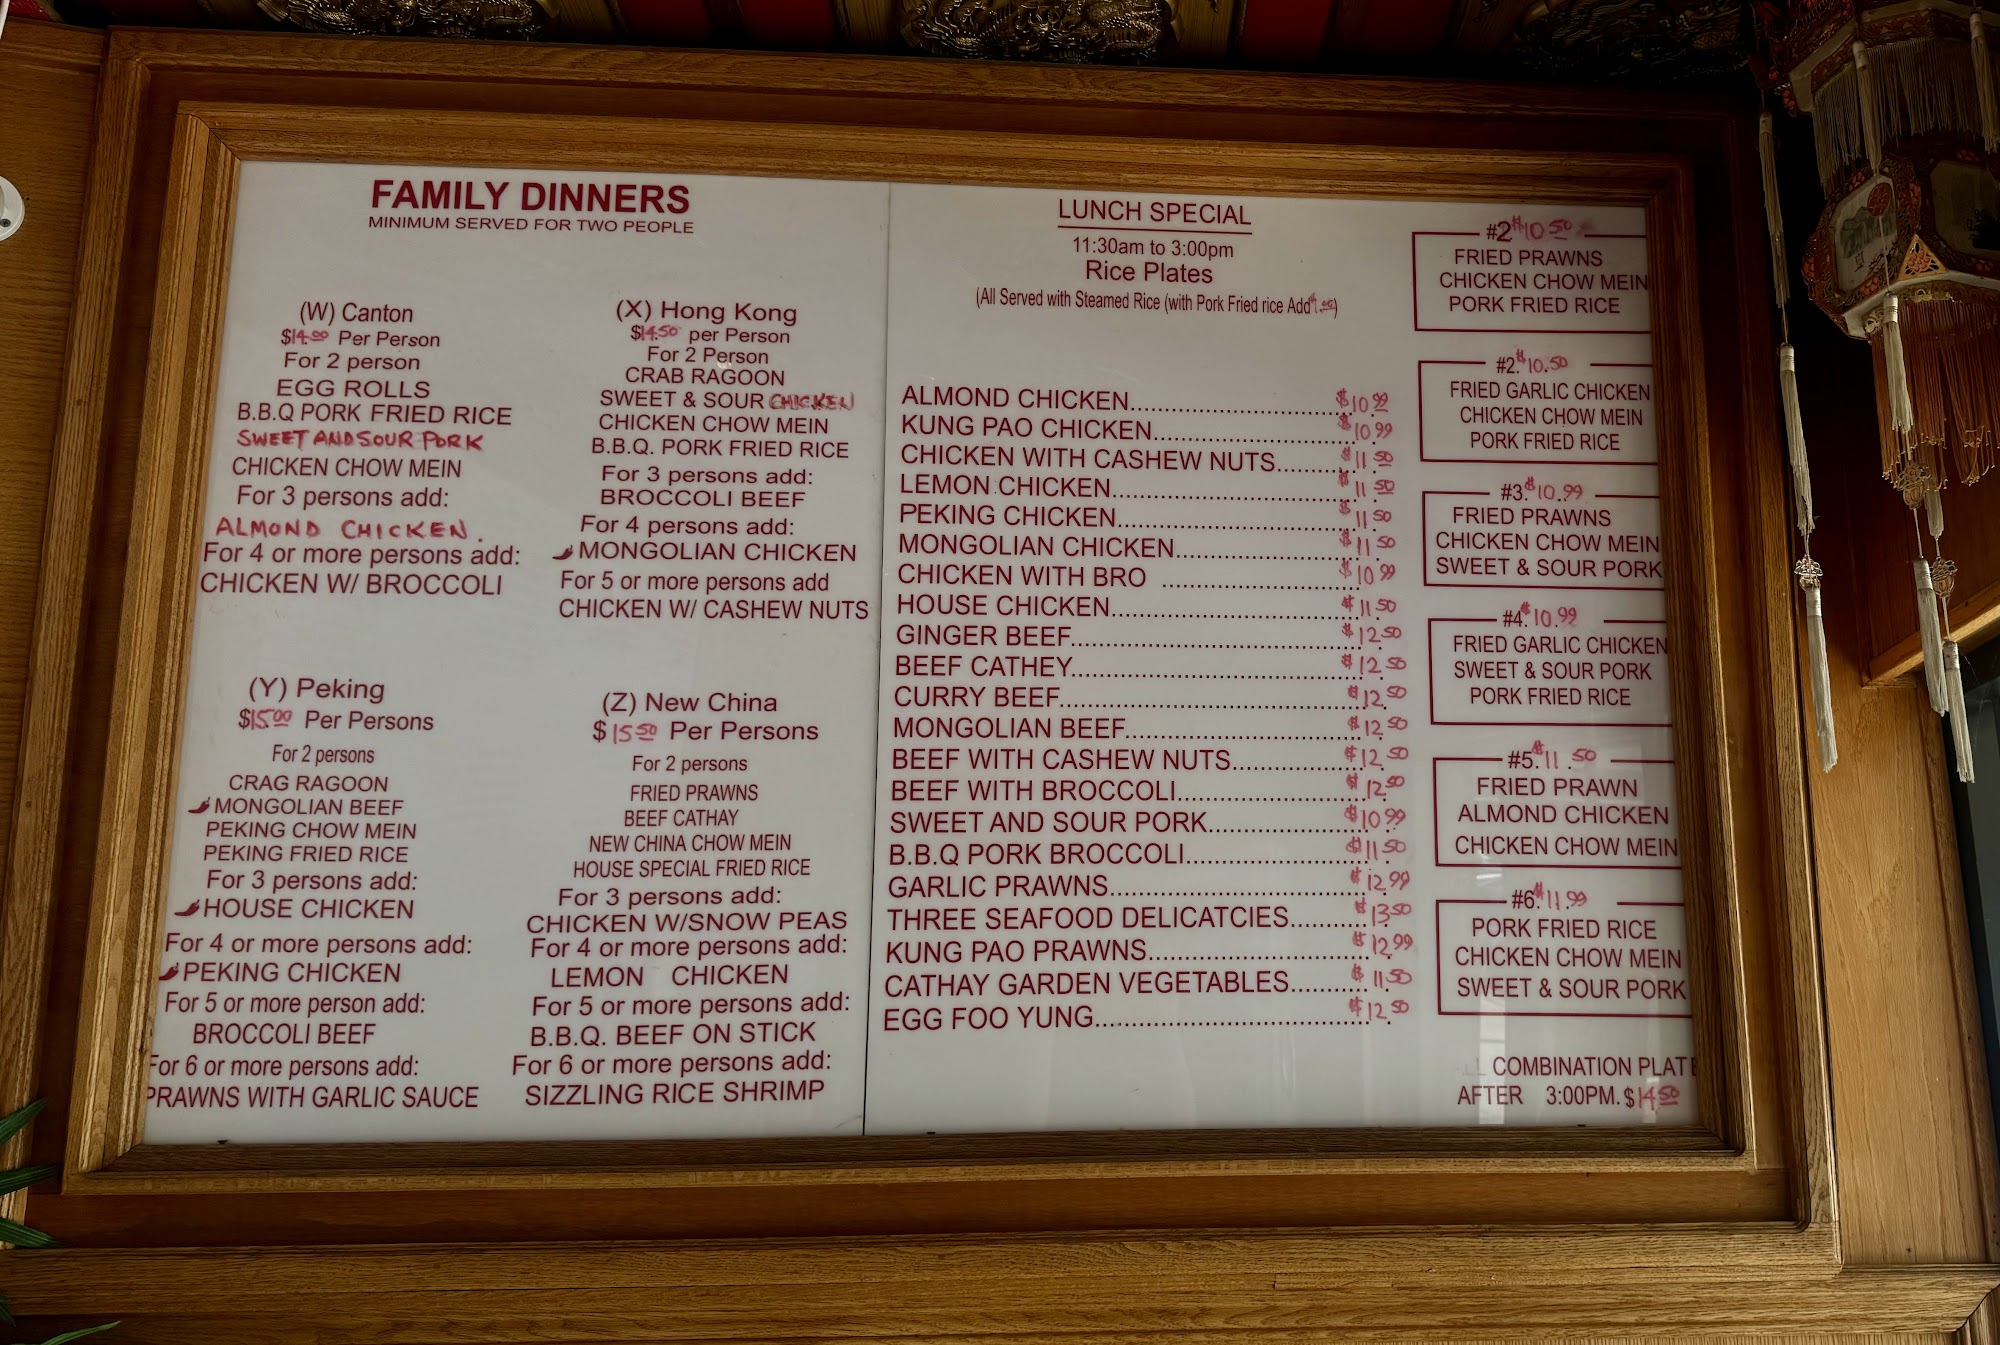 FAMILY DINNERS
MINIMUM SERVED FOR TWO PEOPLE
(W) Canton
$14.00 Per Person
For 2 person
EGG ROLLS
B.B.Q PORK FRIED RICE
SWEET AND SOUR PORK
CHICKEN CHOW MEIN
For 3 persons add:
ALMOND CHICKEN.
For 4 or more persons add:
CHICKEN W/ BROCCOLI
(X) Hong Kong
$14.50 per Person
For 2 Person
CRAB RAGOON
SWEET & SOUR CHICKEN
CHICKEN CHOW MEIN
B.B.Q. PORK FRIED RICE
For 3 persons add:
BROCCOLI BEEF
For 4 persons add:
MONGOLIAN CHICKEN
For 5 or more persons add
CHICKEN W/ CASHEW NUTS
(Y) Peking
$15.00 Per Persons
For 2 persons
CRAG RAGOON
MONGOLIAN BEEF
PEKING CHOW MEIN
PEKING FRIED RICE
For 3 persons add:
HOUSE CHICKEN
For 4 or more persons add:
PEKING CHICKEN
For 5 or more person add:
BROCCOLI BEEF
For 6 or more persons add:
PRAWNS WITH GARLIC SAUCE
(Z) New China
$15.50 Per Persons
For 2 persons
FRIED PRAWNS
BEEF CATHAY
NEW CHINA CHOW MEIN
HOUSE SPECIAL FRIED RICE
For 3 persons add:
CHICKEN W/SNOW PEAS
For 4 or more persons add:
LEMON CHICKEN
For 5 or more persons add:
B.B.Q. BEEF ON STICK
For 6 or more persons add:
SIZZLING RICE SHRIMP
LUNCH SPECIAL
11:30am to 3:00pm
Rice Plates
(All Served with Steamed Rice (with Pork Fried rice Add )
ALMOND CHICKEN $10.99
KUNG PAO CHICKEN $10.99
CHICKEN WITH CASHEW NUTS $11.50
LEMON CHICKEN $11.50
PEKING CHICKEN $11.50
MONGOLIAN CHICKEN $11.50
CHICKEN WITH BRO $10.99
HOUSE CHICKEN $11.50
GINGER BEEF $12.50
BEEF CATHEY $12.50
CURRY BEEF $12.50
MONGOLIAN BEEF $12.50
BEEF WITH CASHEW NUTS $12.50
BEEF WITH BROCCOLI $12.50
SWEET AND SOUR PORK $10.99
B.B.Q PORK BROCCOLI $11.50
GARLIC PRAWNS $12.99
THREE SEAFOOD DELICATCIES $13.50
KUNG PAO PRAWNS $12.99
CATHAY GARDEN VEGETABLES $11.50
EGG FOO YUNG $12.50
#2 $10.50
FRIED PRAWNS
CHICKEN CHOW MEIN
PORK FRIED RICE
#2. $10.50
FRIED GARLIC CHICKEN
CHICKEN CHOW MEIN
PORK FRIED RICE
#3. $10.99
FRIED PRAWNS
CHICKEN CHOW MEIN
SWEET & SOUR PORK
#4. $10.99
FRIED GARLIC CHICKEN
SWEET & SOUR PORK
PORK FRIED RICE
#5. $11.50
FRIED PRAWN
ALMOND CHICKEN
CHICKEN CHOW MEIN
#6. $11.99
PORK FRIED RICE
CHICKEN CHOW MEIN
SWEET & SOUR PORK
COMBINATION PLATE
AFTER 3:00PM. $14.50